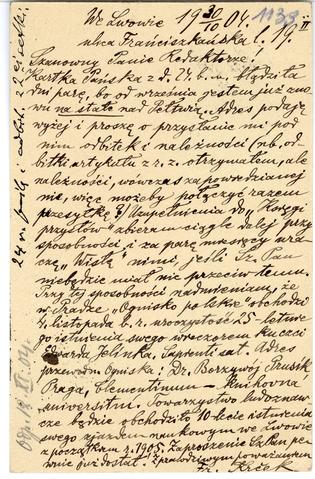 We Lwowie 19 30/10 04. 1133
ulica Franciszkańska l. 19. II
Szanowny Panie Redaktorze!
Kartka Pańska z d. 24. b. m. błądziła
dni parę, bo od września jestem już zno-
wu na stałe nad Pełtwią. Adres podaję
wyżej i proszę o przysłanie mi pod
nim odbitek i należności (nb. od-
bitki artykułu z r. z. otrzymałem, ale
należności, wówczas zapowiedzianej
nie, więc możeby połączyć razem
przesyłkę?) Uzupełnienia do „Księgi
przysłów" zbieram ciągle dalej przy
sposobności i za parę miesięcy
„Wisłę" nimi, jeśli Sz. Pan
niebędzie miał nic przeciw temu.
Przy tej sposobności nadmieniam, że
w Pradze „Ognisko polskie" obchodzi
4. listopada b. r. uroczystość 25-letnie-
go istnienia swego wieczorem ku czci
Edwarda Jelinka. Sapienti sat. Adres
przewodn. Ogniska: Dr. Borzywój Prusík
Praga, Clementinum — knihovna
universitní. Towarzystwo ludoznaw-
cze będzie obchodziło 10-lecie istnienia
swego zjazdem naukowym we Lwowie
z początkiem r. 1905. Zaproszenie Sz. Pan pe-
wnie już dostał. Z prawdziwym poważaniem
Fr. Krček
24 na pocztę i odbit. 2
Odp. 18 XI. 04.